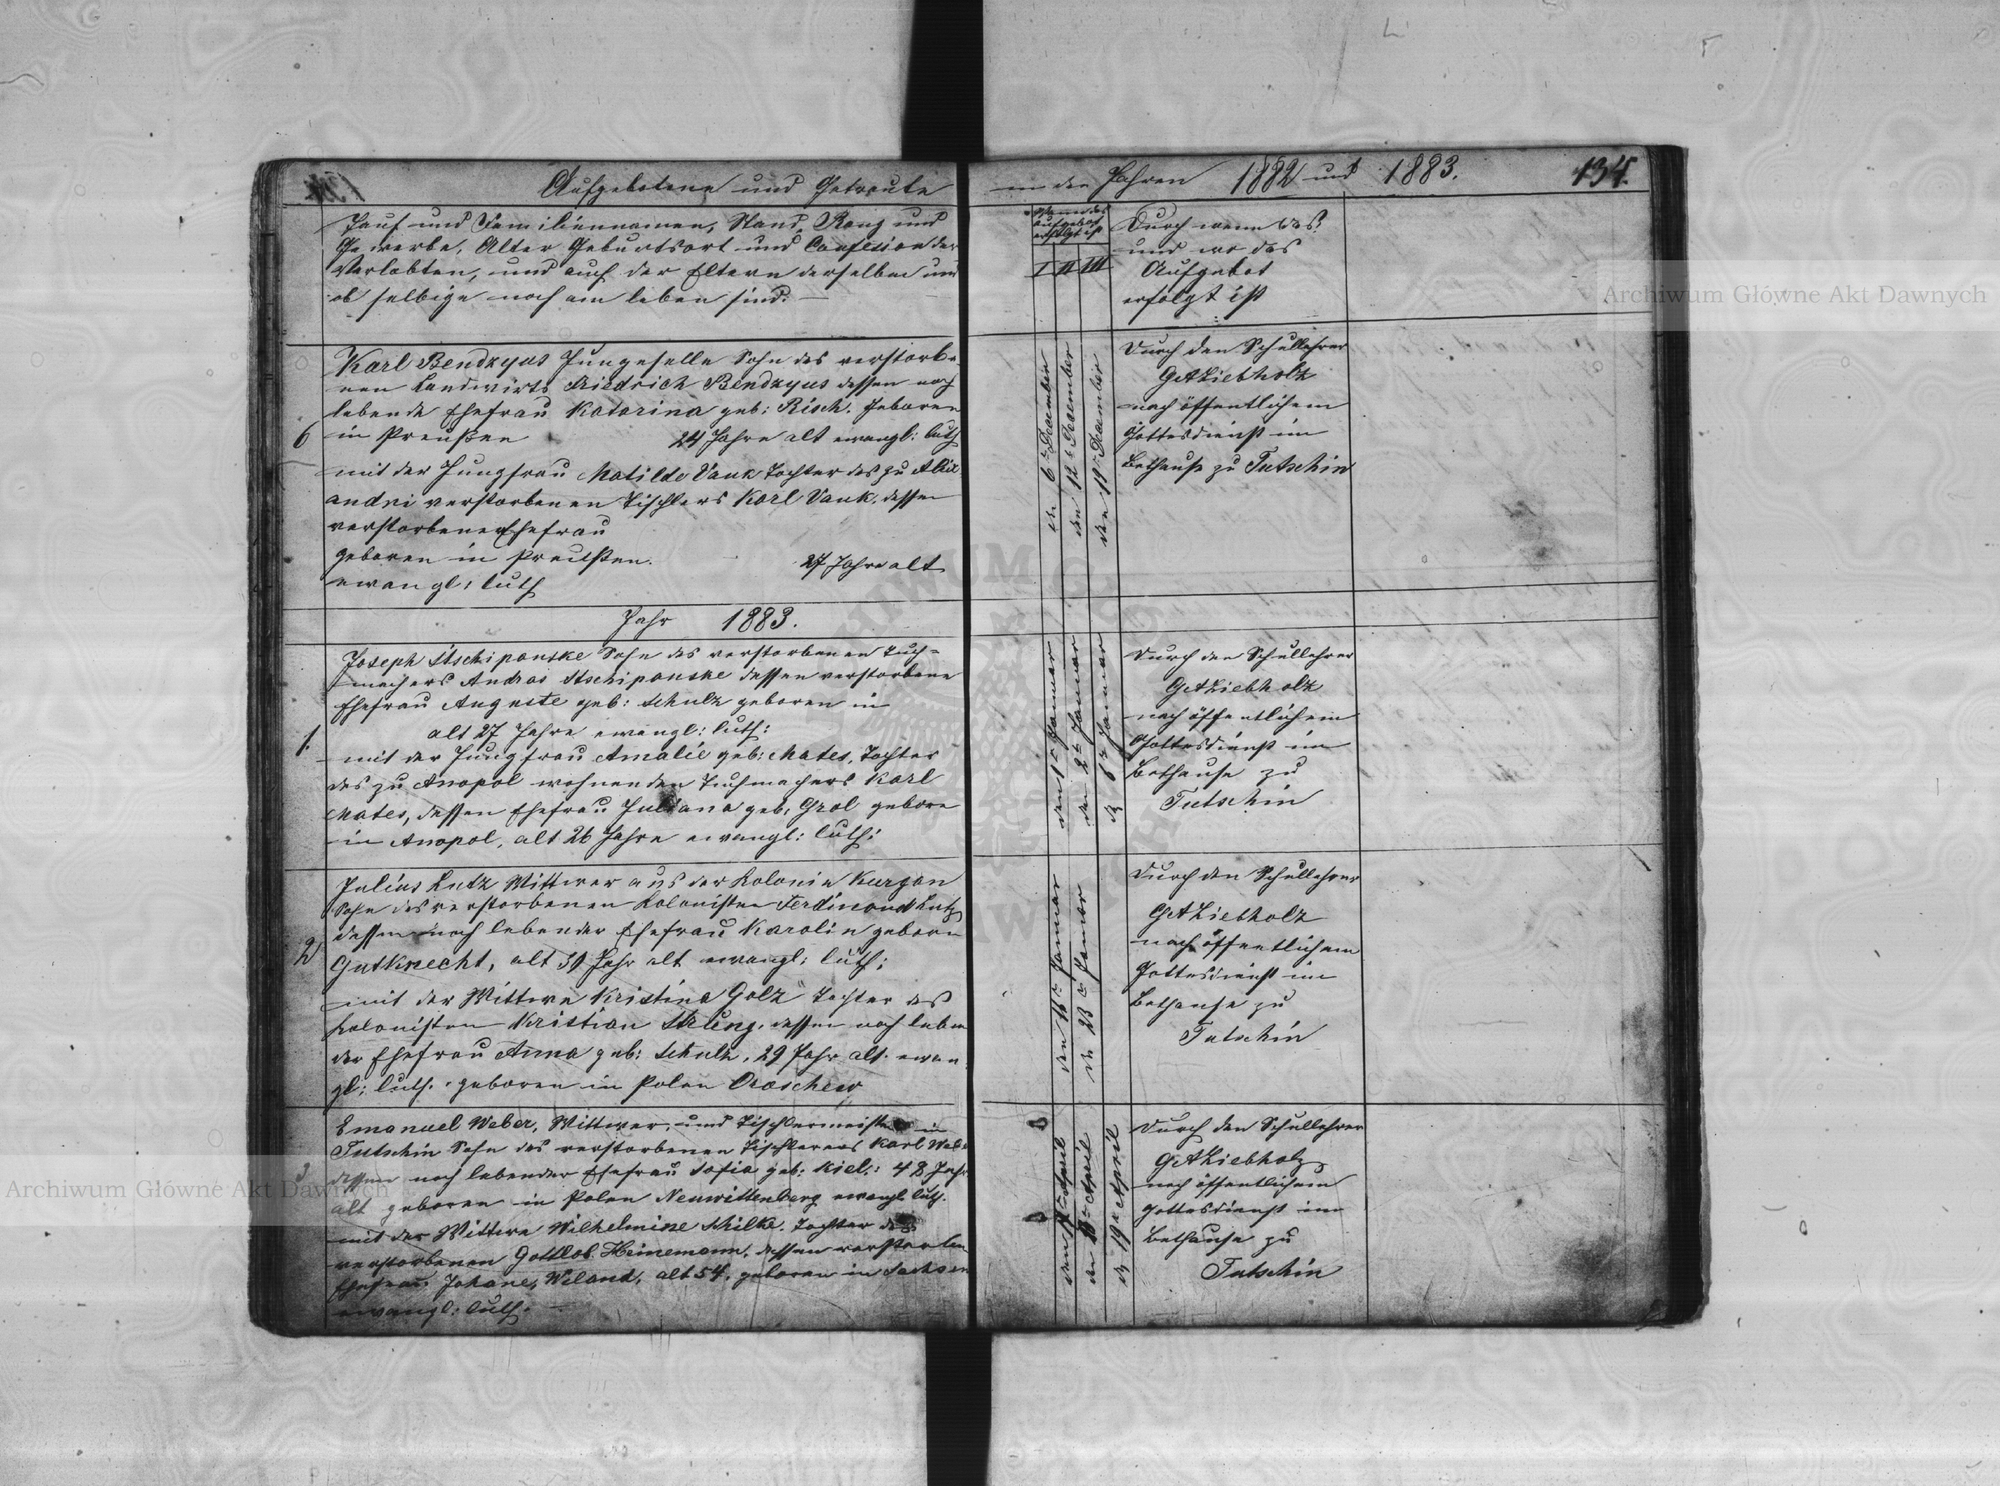 Aufgebotene und Getraute
Tauf und Familiennamen, Stand, Rang und
Gewerbe, Alter Geburtsort und Confesion der
Verlobten, und auch der Eltern derselben und
ob selbige noch am leben sind. —
6
Karl Bendzyus Jungeselle Sohn des verstorbe-
nen Landwirts Friedrich Bendzyus dessen noch
lebende Ehefrau Katarina geb: Risch. Geboren
in Preußen 24 Jahre alt ewangl: luth
mit der Jungfrau Matilde Vauk Tochter des zu Alix
andri verstorbenen Tischlers Karl Vauk, dessen
verstorbene Ehefrau
geboren in Preußen. 27 Jahre alt
ewangl: luth
Jahr 1883.
1.
Joseph Stschiponske Sohn des verstorbenen Tuch=
machers Andras Stschiponske dessen verstorbene
Ehefrau Auguste geb: Schulz geboren in
alt 27 Jahre ewangl: luth:
mit der Jungfrau Amalie geb: Mates, Tochter
des zu Anopol wohnenden Tuchmachers Karl
Mates, dessen Ehefrau Juliana geb. Grol geboren
in Anopol, alt 26 Jahre ewangl: luth:
2
Julius Lutz Wittwer aus der Kolonie Kurgan
Sohn des verstorbenen Kolonisten Ferdinand Lutz
dessen noch lebender Ehefrau Karolin geboren
Gutknecht, alt 39 Jahr alt ewangl: luth:
mit der Wittwe Kristina Golz Tochter des
Kolonisten Kristian Strüng, dessen noch leben
der Ehefrau Anna geb: Schulz, 29 Jahr alt ewan
gl: luth. geboren in Polen Oroschew
3
Emanuel Weber, Wittwer, und Tischlermeister in
Tutschin Sohn des verstorbenen Tischlers Karl Weber
dessen noch lebender Ehefrau Sofia geb: Kiel: 48 Jahr
alt geboren in Polen Neuwittenberg ewangl. luth.
mit der Wittwe Wilhelmine Schilke, Tochter des
verstorbenen Gottlob Heinemann, dessen verstorben
Ehefrau Johane, Weland, alt 54, geboren in Sachsen
ewangl: luth: —
in den Jahren 1882 und 1883.
134.
Wann das
Aufgebot
erfolgt ist
I II III
Durch wenn das
und wo das
Aufgebot
erfolgt ist
den 6ten December
den 12ten December
den 19ten December
Durch den Schullehrer
GAKiebholz
nach öffentlichem
Gottesdienst im
Bethause zu Tutschin
den 1ten Januar
den 2ten Januar
d 6ten Januar
Durch den Schullehrer
GAKiebholz
nach öffentlichem
Gottesdienst im
Bethause zu
Tutschin
den 16ten Januar
den 23ten Januar
Durch den Schullehrer
GAKiebholz
nach öffentlichem
Gottesdienst im
Bethause zu
Tutschin
April
April
d 19ten April
Durch den Schullehrer
GAKiebholz
nach öffentlichem
Gottesdienst im
Bethause zu
Tutschin
Archiwum Główne Akt Dawnych
Archiwum Główne Akt Dawnych